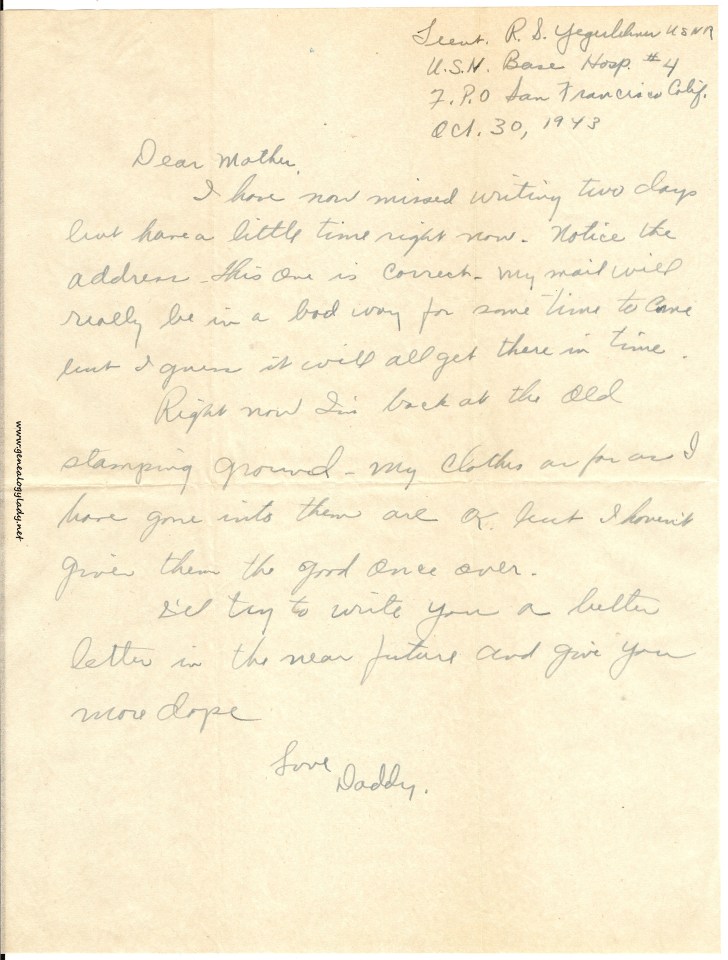 Lieut. R. S. Yegerlehner USNR
U.S.N. Base Hosp. #4
F.P.O San Francisco Calif.
Oct. 30, 1943
Dear Mother,
I have now missed writing two days
but have a little time right now. Notice the
address - this one is correct - my mail will
really be in a bad way for some time to come
but I guess it will all get there in time.
Right now I'm back at the old
stamping ground - my clothes as far as I
have gone into them are OK. but I haven't
given them the good once over.
I'll try to write you a better
letter in the near future and give you
more dope
Love
Daddy.
www.genealogylady.net